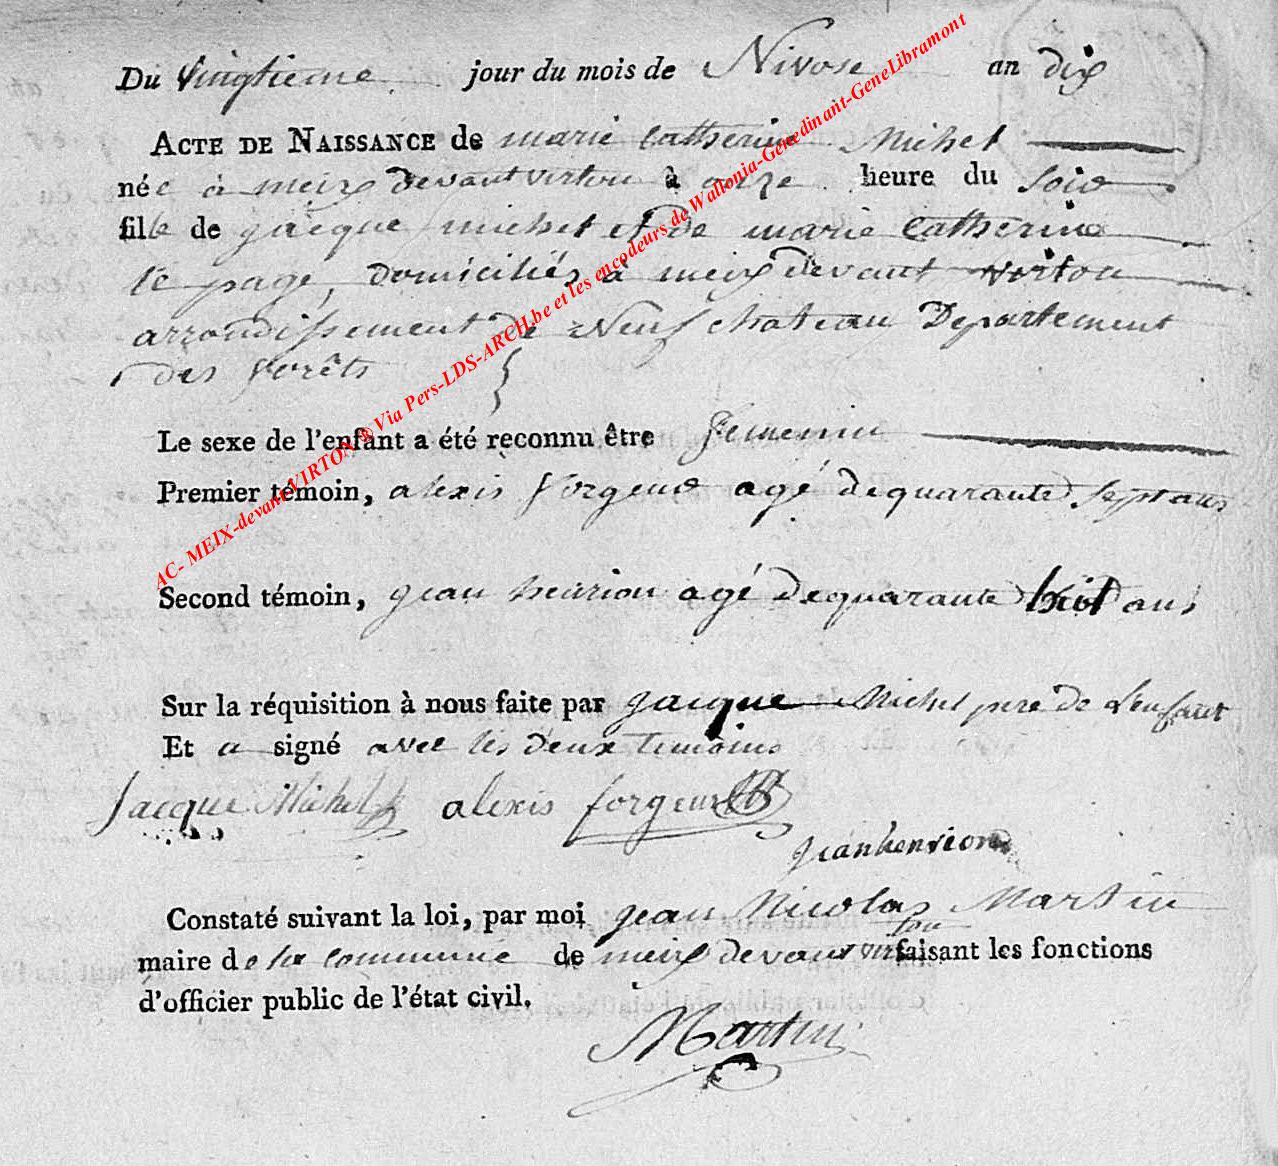 Du vingtieme jour du mois de Nivose an dix
ACTE DE NAISSANCE de marie Catherine Michel
née à meix devant virton à onze heure du soir
fille de jacque michel et de marie Catherine
le page, domiciliés à meix devant virton
arrondissement de Neufchateau Departement
des forêts
Le sexe de l'enfant a été reconnu être femenin
Premier témoin, alexis forgeur agé de quarante sept ans
Second témoin, jean henrion agé de quarante huit ans
Sur la réquisition à nous faite par jacque Michel pere de l'enfant
Et a signé avec les deux temoins
Jacque Michel alexis forgeur
jean henrion
Constaté suivant la loi, par moi jean Nicolas Martin
maire de la commune de meix devant virton faisant les fonctions
d'officier public de l'état civil.
Martin
AC- MEIX-devant-VIRTON ® Via Pers-LDS-ARCH.be et les encodeurs de Wallonia-Genedinant-GeneLibramont